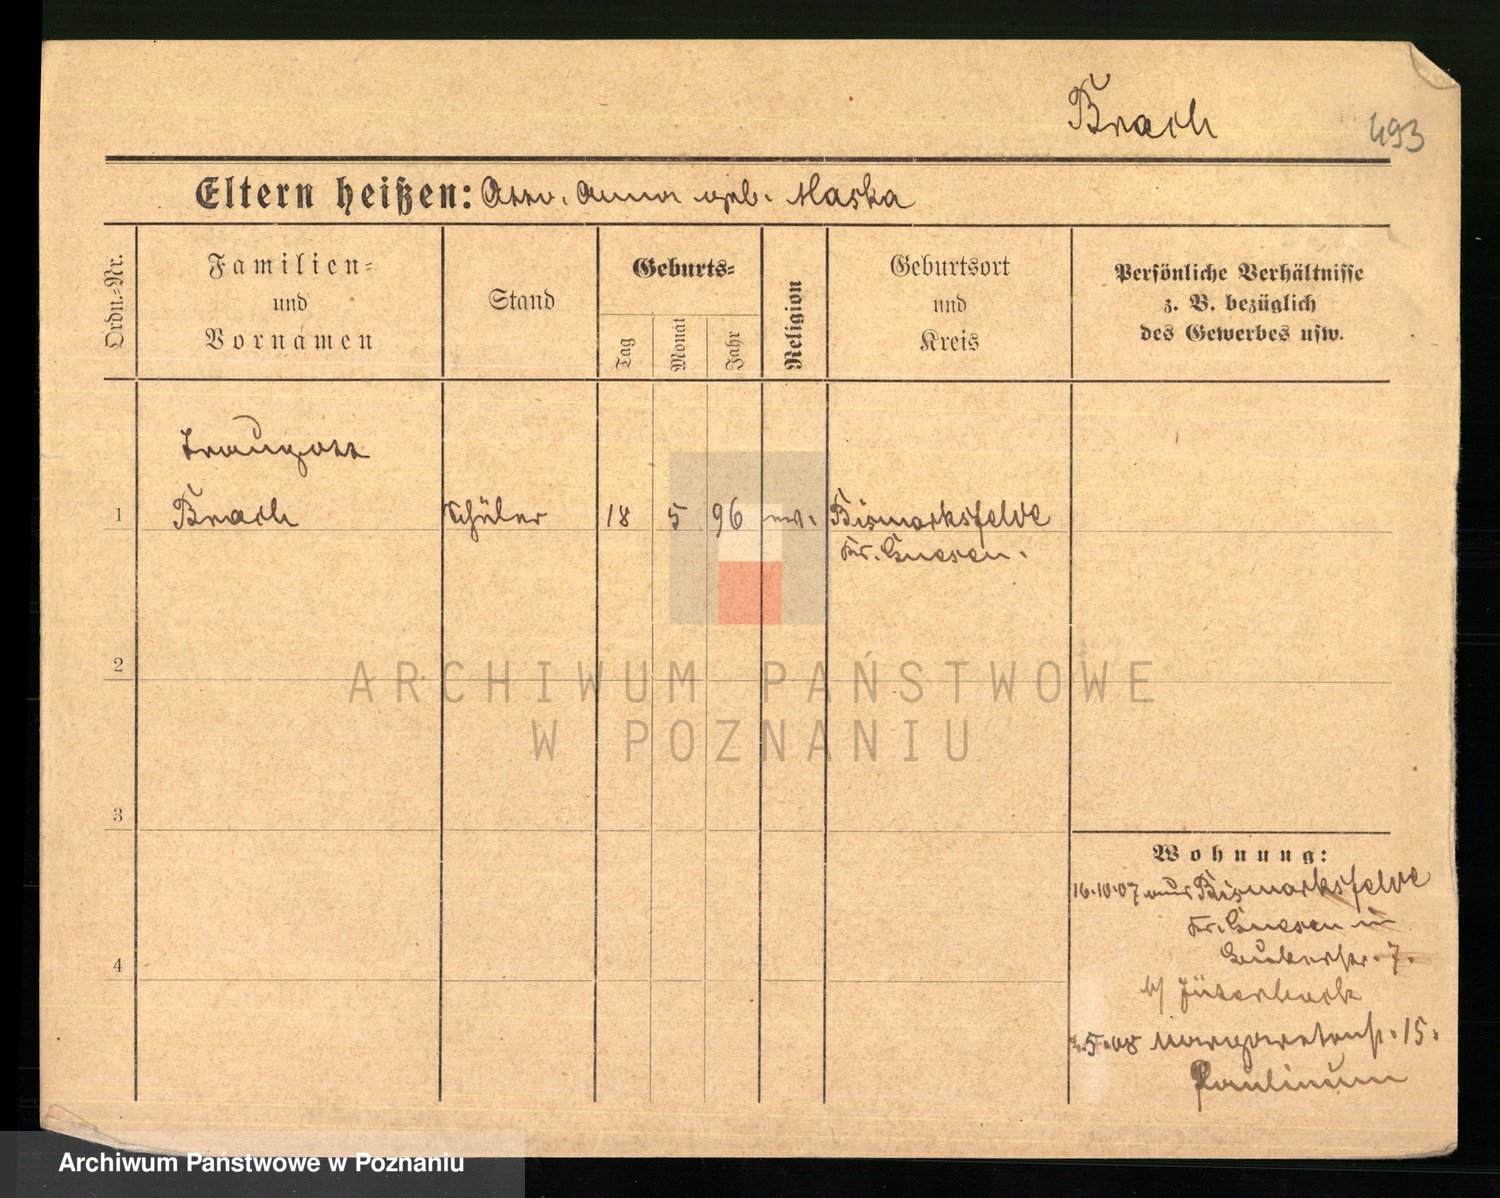 Brach
493
Eltern heißen: Otto. Anna geb. Maska
Ordn.-Nr.
Familien-
und
Vornamen
Stand
Geburts-
Tag
Monat
Jahr
Religion
Geburtsort
und
Kreis
Persönliche Verhältnisse
z. B. bezüglich
des Gewerbes usw.
Traugott
1 Brach Schüler 18 5 96 ev. Bismarksfelde
Kr. Gnesen.
2
ARCHIWUM PAŃSTWOWE
W POZNANIU
3
Wohnung:
16.10.07 aus Bismarksfelde
Kr. Gnesen in
7.
b/ Jüterbock
5.08 Margaretenstr. 15.
Paulinum
4
Archiwum Państwowe w Poznaniu